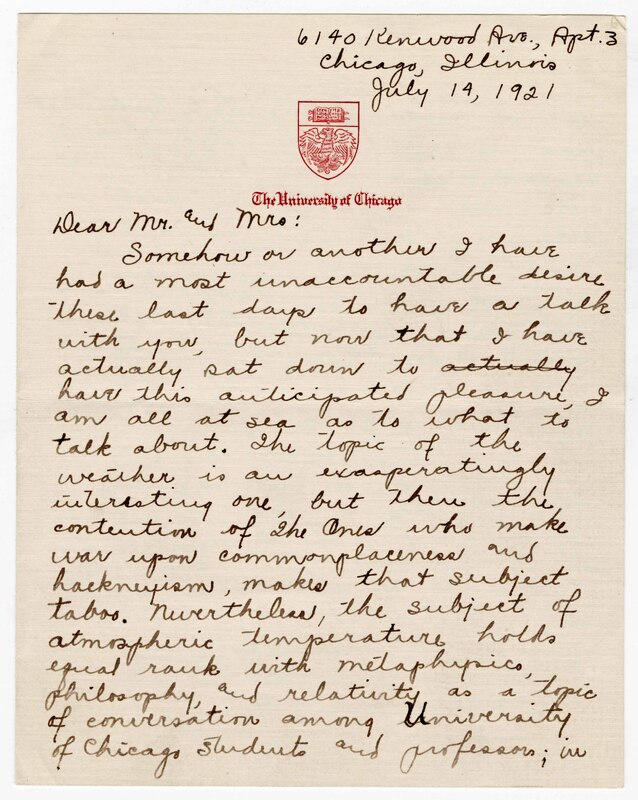 6140 Kenwood Ave., Apt. 3
Chicago, Illinois
July 14, 1921
The University of Chicago
Dear Mr. and Mrs:
Somehow or another I have
had a most unaccountable desire
these last days to have a talk
with you, but now that I have
actually sat down to actually
have this anticipated pleasure, I
am all at sea as to what to
talk about. The topic of the
weather is an exasperatingly
interesting one, but then the
contention of the Ones who make
war upon commonplaceness and
hackneyism, makes that subject
taboo. Nevertheless, the subject of
atmospheric temperature holds
equal rank with metaphysics,
philosophy, and relativity as a topic
of conversation among University
of Chicago students and professors; in